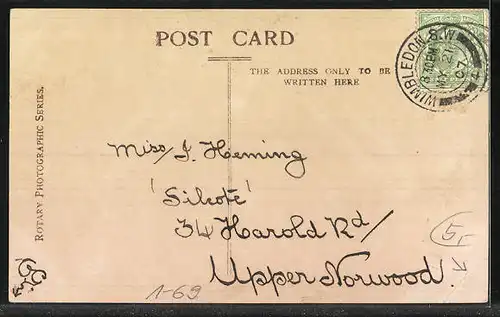 POST CARD
THE ADDRESS ONLY TO BE
WRITTEN HERE
WIMBLEDON. S.W.
8.30PM
21
07
ROTARY PHOTOGRAPHIC SERIES.
Miss J. Heming
'Silcote'
34 Harold Rd
Upper Norwood.
5,-
1-69